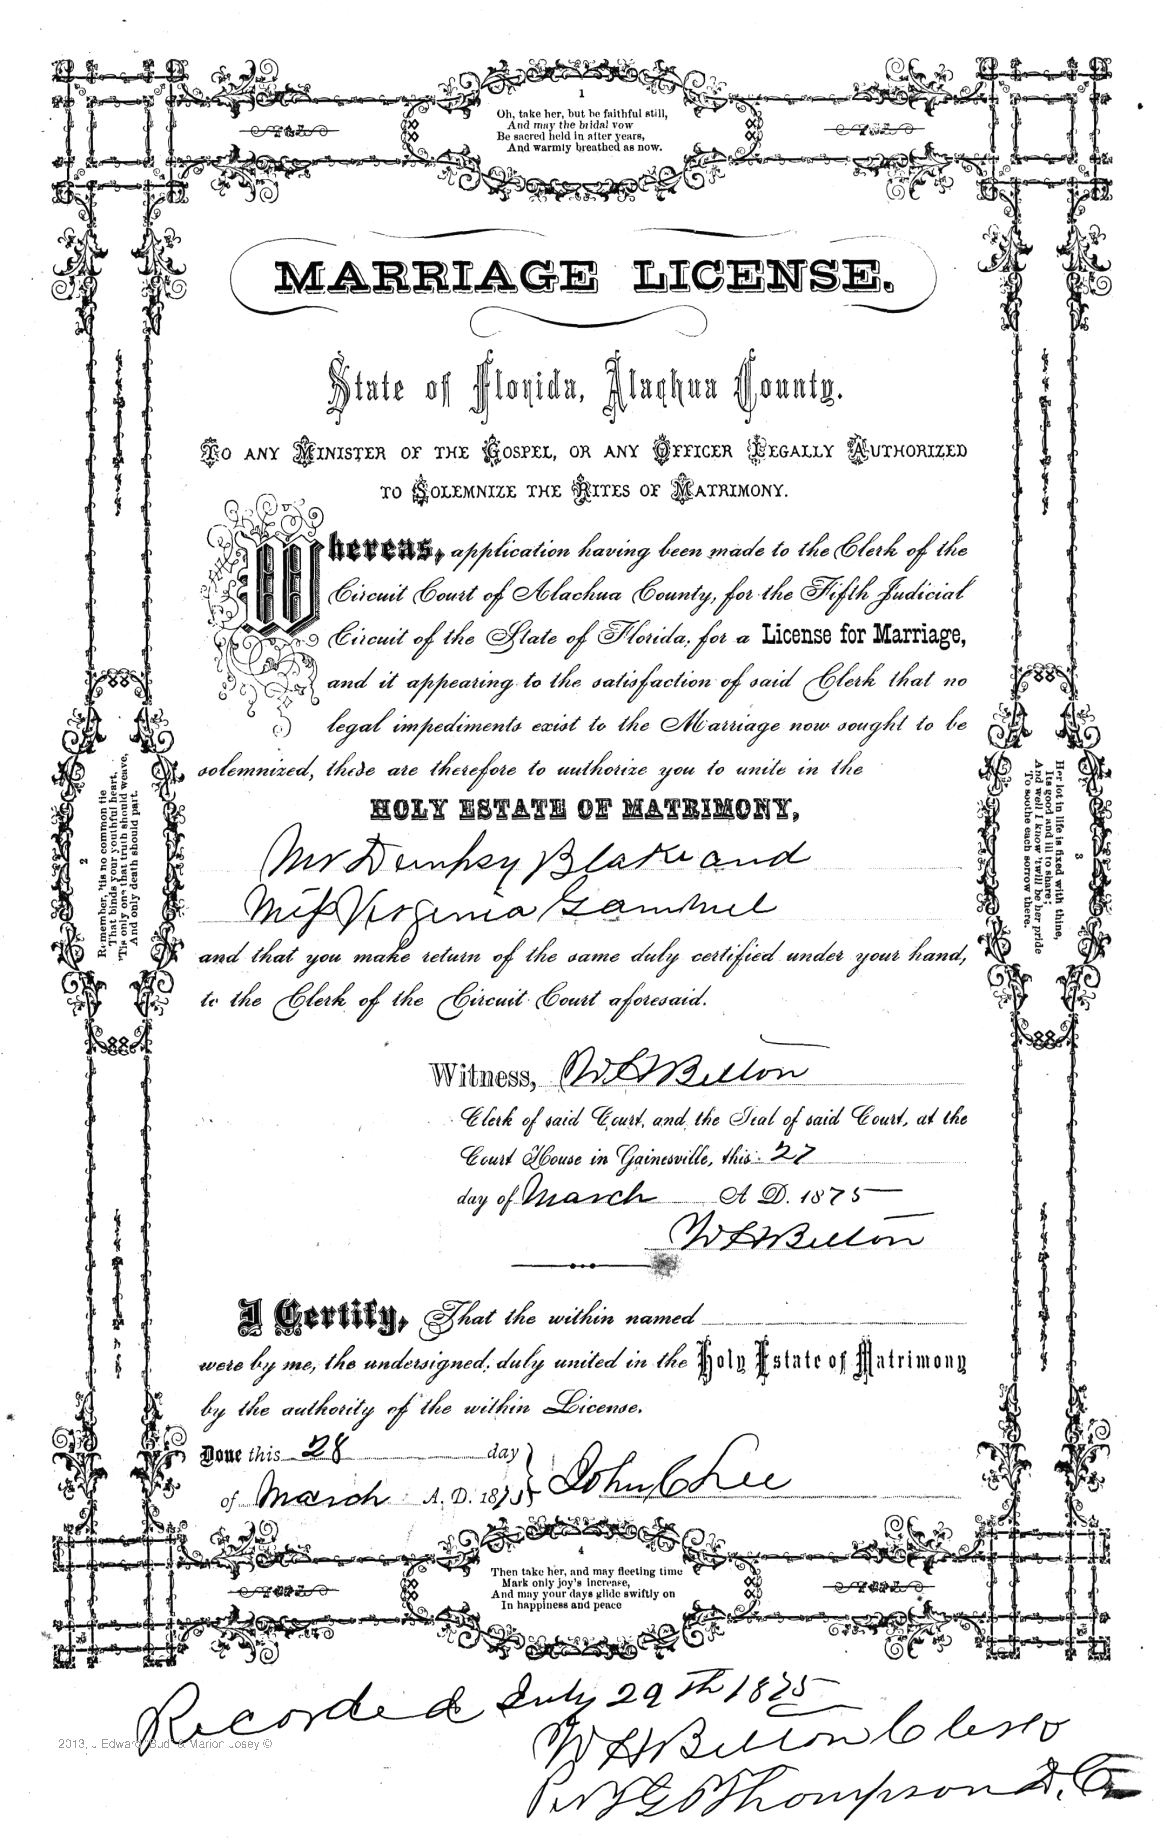 1
Oh, take her, but be faithful still,
And may the bridal vow
Be sacred held in after years,
And warmly breathed as now.
MARRIAGE LICENSE.
State of Florida, Alachua County.
TO ANY MINISTER OF THE GOSPEL, OR ANY OFFICER LEGALLY AUTHORIZED
TO SOLEMNIZE THE RITES OF MATRIMONY.
Whereas, application having been made to the Clerk of the
Circuit Court of Alachua County, for the Fifth Judicial
Circuit of the State of Florida, for a License for Marriage,
and it appearing to the satisfaction of said Clerk that no
legal impediments exist to the Marriage now sought to be
solemnized, these are therefore to authorize you to unite in the
HOLY ESTATE OF MATRIMONY,
Mr Dempsy Blake and
Miss Virginia Gammel
and that you make return of the same duly certified under your hand,
to the Clerk of the Circuit Court aforesaid.
2
Remember, 'tis no common tie
That binds your youthful heart,
'Tis only one that truth should weave,
And only death should part.
3
Her lot in life is fixed with thine,
Its good and ill to share;
And well I know 'twill be her pride
To soothe each sorrow there.
Witness, W H Belton
Clerk of said Court, and the Seal of said Court, at the
Court House in Gainesville, this 27
day of March A D. 1875
W H Belton
I Certify, That the within named
were by me, the undersigned, duly united in the Holy Estate of Matrimony
by the authority of the within License.
Done this 28 day
of March A. D. 1875 John C Lee
4
Then take her, and may fleeting time
Mark only joy's increase,
And may your days glide swiftly on
In happiness and peace
Recorded July 29th 1875
W H Belton Clerk
Per G P Thompson D. C.
2013, J. Edward "Bud" & Marion Josey ©